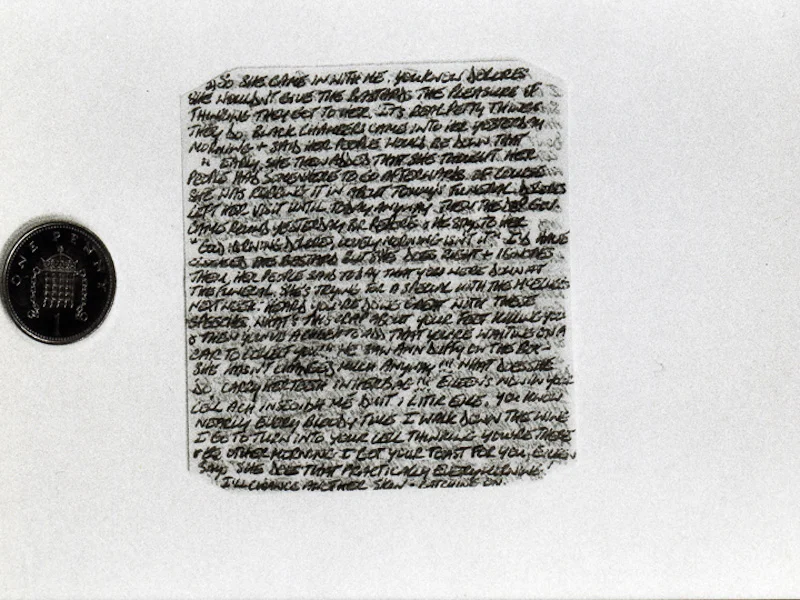 ONE PENNY
SO SHE CAME IN WITH ME. YOU KNOW DOLORES
SHE WOULDN'T GIVE THE BASTARDS THE PLEASURE OF
THINKING THEY GOT TO HER. IT'S REAL PETTY THINGS
THEY DO, BLACK CHAMBERS CAME INTO HER YESTERDAY
MORNING + SAID HER PEOPLE WOULD BE DOWN THAT
EARLY, SHE THEN ADDED THAT SHE THOUGHT HER
PEOPLE HAD SOMEWHERE TO GO AFTERWARDS. OF COURSE
SHE WAS RUBBING IT IN ABOUT TOMMY'S FUNERAL. DOLORES
LEFT HER VISIT UNTIL TODAY ANYWAY. THEN THE DEP. GOV.
CAME ROUND YESTERDAY FOR + HE SAYS TO HER
"GOOD MORNING DOLORES, LOVELY MORNING ISN'T IT". I'D HAVE
THE BASTARD BUT SHE DOES RIGHT + IGNORES
THEM. HER PEOPLE SAID TODAY THAT YOU WERE DOWN AT
THE FUNERAL. SHE'S TRYING FOR A SPECIAL WITH THE
NEXT WEEK. HEARD YOU'RE DOING GREAT WITH THESE
SPEECHES, WHAT'S THIS CRAP ABOUT YOUR FEET KILLING YOU
+ THEN YOU'VE A CHEEK TO ADD THAT YOU'RE WAITING ON A
CAR TO COLLECT YOU!!! WE SAW ANN DUFFY ON THE BOX
SHE HASN'T CHANGED MUCH ANYWAY!!! WHAT DOES SHE
DO CARRY HER TEETH IN HER BAG!!! EILEEN'S NOW IN YOUR
CELL ACH INSEOIDH ME DUIT, YOU KNOW
NEARLY EVERY BLOODY TIME I WALK DOWN THE WING
I GO TO TURN INTO YOUR CELL THINKING YOU'RE THERE
OTHER MORNING I GOT YOUR TOAST FOR YOU, EILEEN
SAYS SHE DOES THAT PRACTICALLY EVERY MORNING!
I'LL CHANCE ANOTHER SKIN - CATCHING ON.